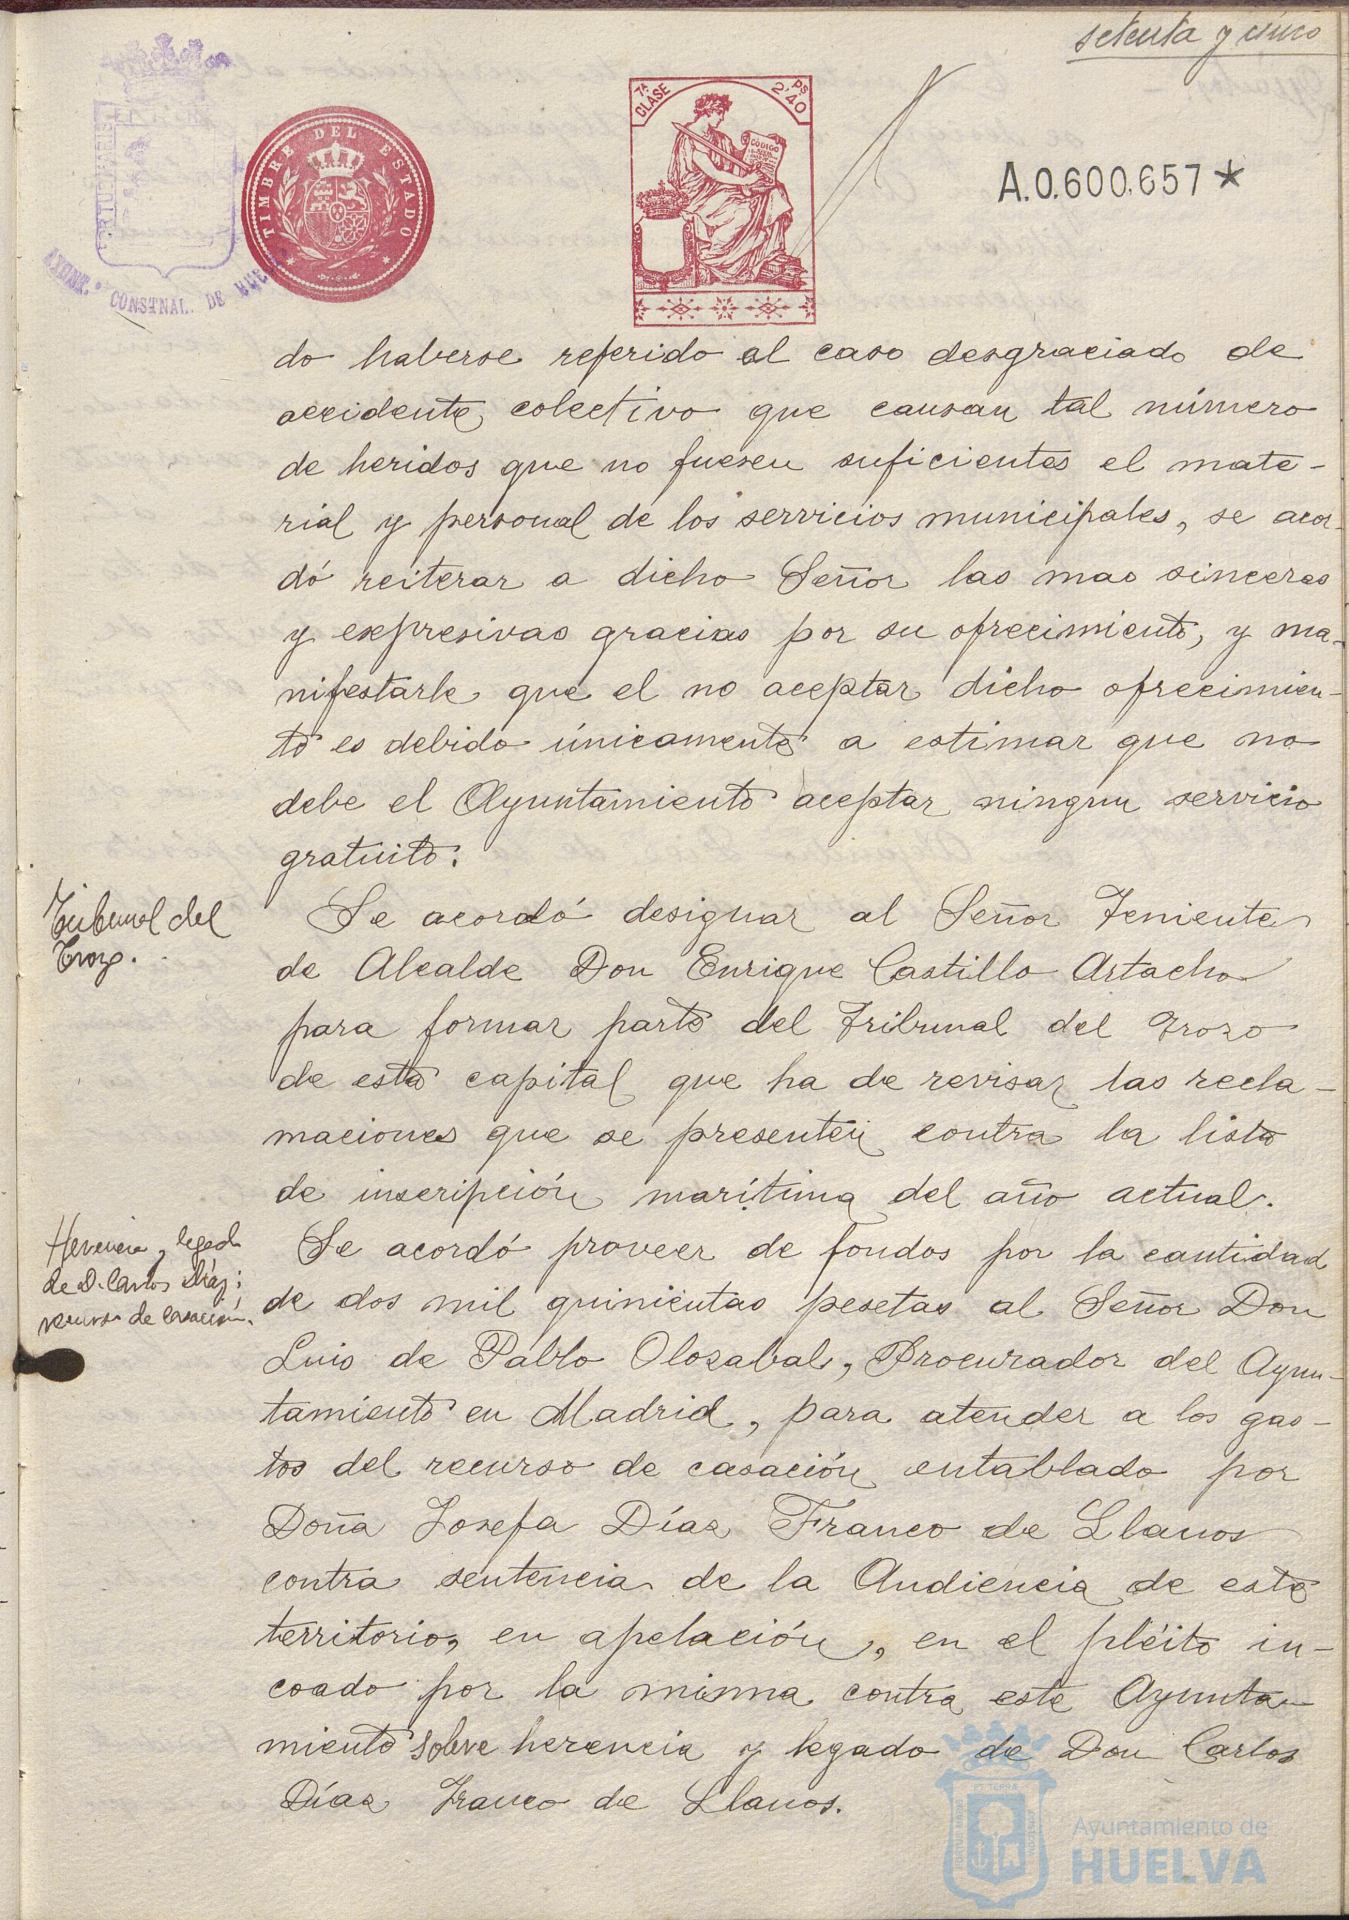 setenta y cinco
TIMBRE DEL ESTADO
7ª CLASE
PS 2'40
CÓDIGO
A.0.600.657*
AYUNT.º CONST.NAL. DE HUELVA
do haberse referido al caso desgraciado de
accidente colectivo que causan tal número
de heridos que no fuesen suficientes el mate-
rial y personal de los servicios municipales, se acor-
dó reiterar a dicho Señor las mas sinceras
y expresivas gracias por su ofrecimiento, y ma-
nifestarle que el no aceptar dicho ofrecimien-
to es debido únicamente a estimar que no
debe el Ayuntamiento aceptar ningun servicio
gratuito.
Tribunal del
Trozo.
Se acordó designar al Señor Teniente
de Alcalde Don Enrique Castillo Artacho
para formar parte del Tribunal del Trozo
de esta capital que ha de revisar las recla-
maciones que se presenten contra la lista
de inscripción marítima del año actual.
Herencia y legado
de D. Carlos Díaz;
recurso de casación.
Se acordó proveer de fondos por la cantidad
de dos mil quinientas pesetas al Señor Don
Luis de Pablo Olozabal, Procurador del Ayun-
tamiento en Madrid, para atender a los gas-
tos del recurso de casación entablado por
Doña Josefa Díaz Franco de Llanos
contra sentencia de la Audiencia de este
territorio, en apelación, en el pléito in-
coado por la misma contra este Ayunta-
miento sobre herencia y legado de Don Carlos
Díaz Franco de Llanos.
Ayuntamiento de
HUELVA